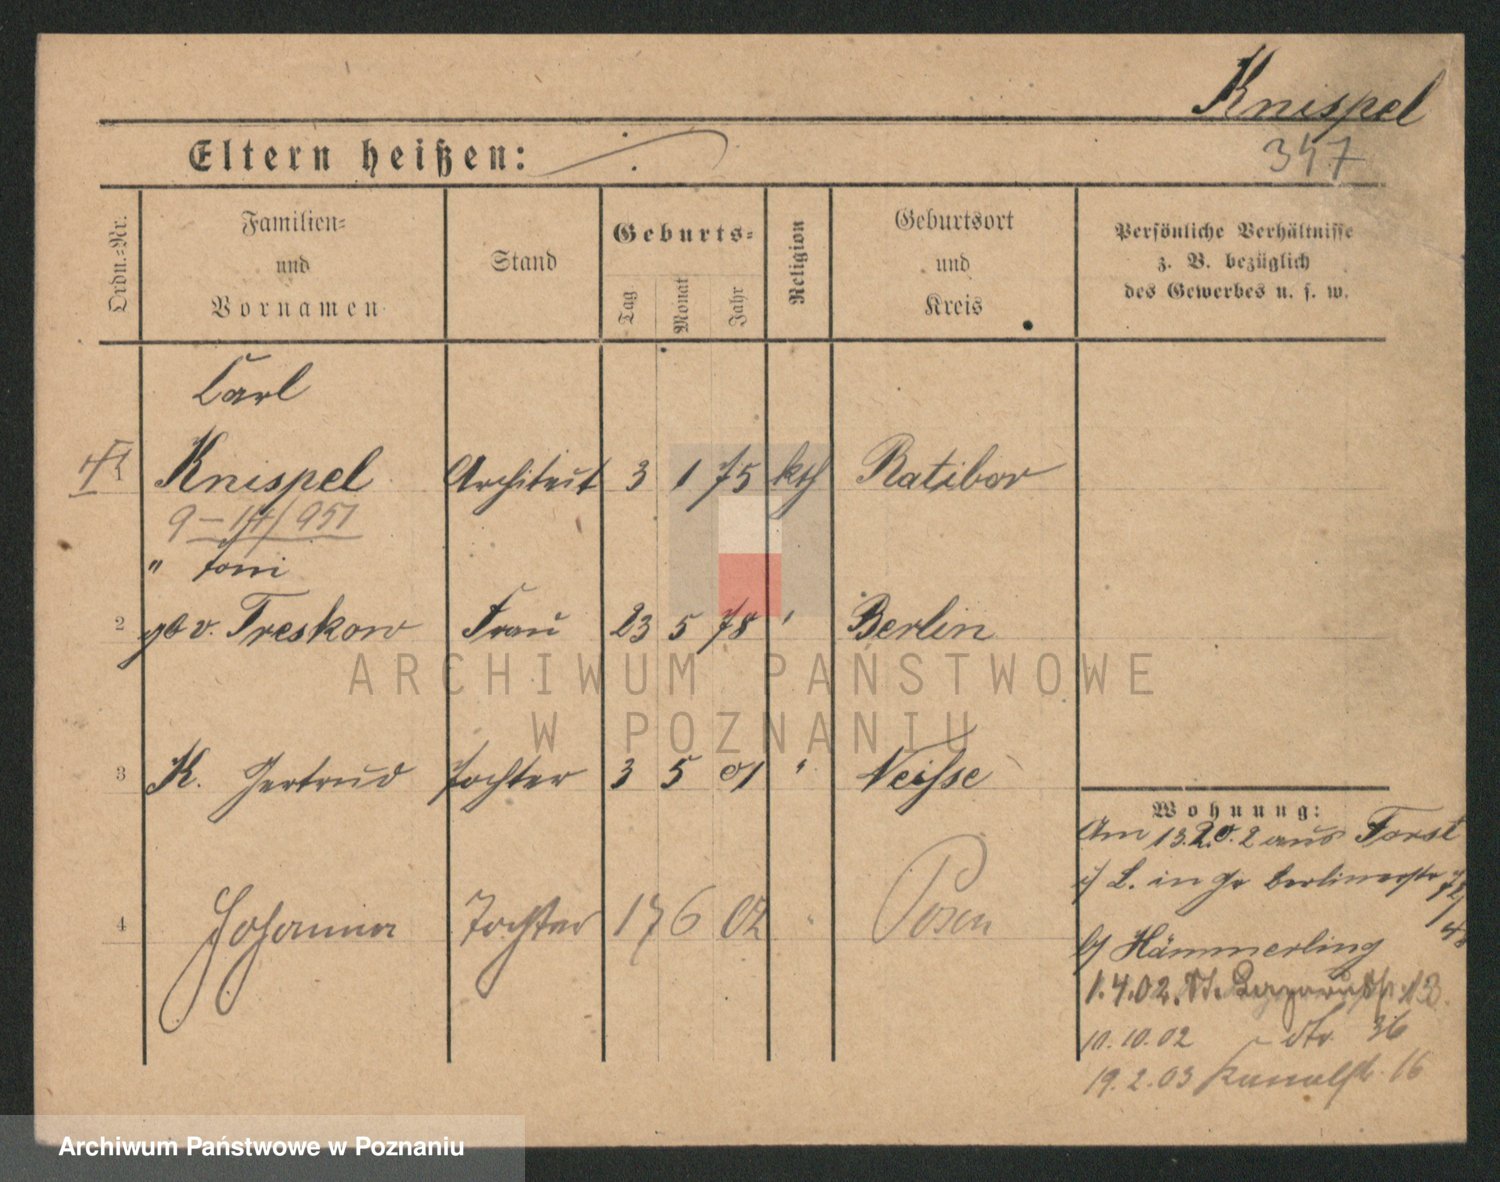 Knispel
347
Eltern heißen:
Ordn.-Nr.
Familien-
und
Vornamen
Stand
Geburts-
Tag Monat Jahr
Religion
Geburtsort
und
Kreis
Persönliche Verhältnisse
z. B. bezüglich
des Gewerbes u. s. w.
Carl
1 Knispel Architect 3 1 75 kth Ratibor
9 – 14/951
" Toni
2 gb v. Treskow Frau 23 5 78 " Berlin
3 K. Gertrud Tochter 3 5 01 " Neisse
4 Johanna Tochter 17 6 02 " Posen
Wohnung:
Am 13.2.02 aus Forst
i/ L. in Gr Berlinerstr
b/ Hämmerling
1.4.02. St. Lazarusstr. 13.
10.10.02 dto 36
19.2.03 Kanalstr. 16
ARCHIWUM PAŃSTWOWE
W POZNANIU
Archiwum Państwowe w Poznaniu